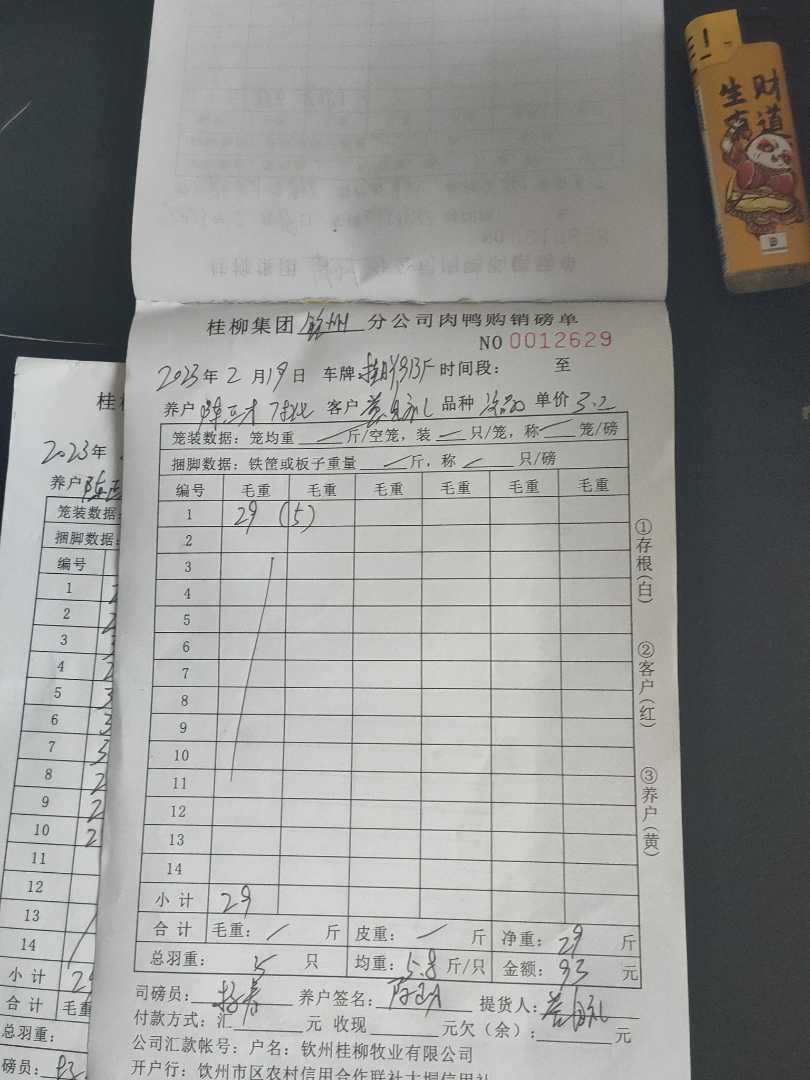 桂柳集团 钦州 分公司肉鸭购销磅单
NO 0012629
2023年 2 月 19 日 车牌: 时间段: 至
养户 客户 品种 单价 3.2
笼装数据: 笼均重 斤/空笼, 装 只/笼, 称 笼/磅
捆脚数据: 铁筐或板子重量 斤, 称 只/磅
编号 毛重 毛重 毛重 毛重 毛重 毛重
1 29 (5)
2
3
4
5
6
7
8
9
10
11
12
13
14
小 计 29
合 计 毛重: / 斤 皮重: / 斤 净重: 29 斤
总羽重: 5 只 均重: 5.8 斤/只 金额: 93 元
司磅员: 养户签名: 提货人:
付款方式: 汇 元 收现 元欠(余): 元
公司汇款帐号: 户名: 钦州桂柳牧业有限公司
开户行: 钦州市区农村信用合作联社大垌信用社
①存根(白)
②客户(红)
③养户(黄)
桂
2023年
养户
笼装数据:
捆脚数据:
编号
1
2
3
4
5
6
7
8
9
10
11
12
13
14
小 计
合 计 毛重
总羽重:
磅员:
生财
有道